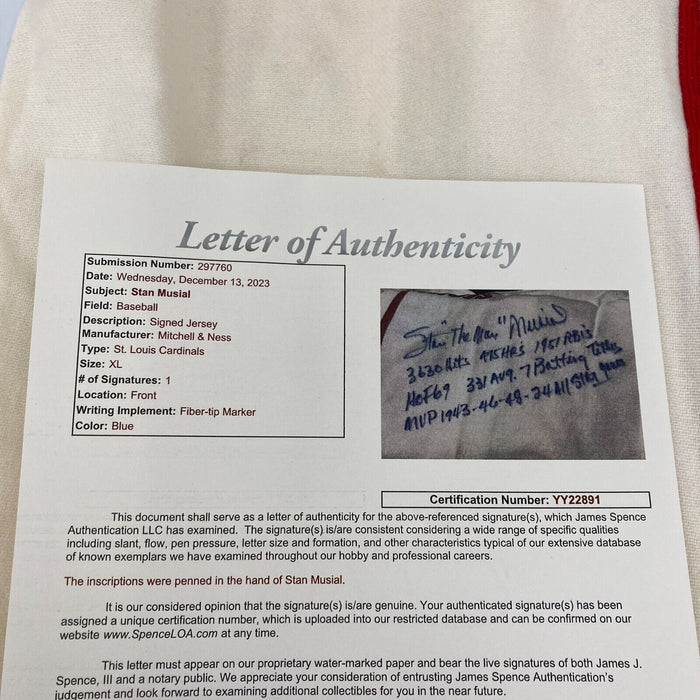 Letter of Authenticity
Submission Number: 297760
Date: Wednesday, December 13, 2023
Subject: Stan Musial
Field: Baseball
Description: Signed Jersey
Manufacturer: Mitchell & Ness
Type: St. Louis Cardinals
Size: XL
# of Signatures: 1
Location: Front
Writing Implement: Fiber-tip Marker
Color: Blue
Stan "The Man" Musial
3630 Hits 475 HR's 1951 RBI's
HOF69 331 Avg. 7 Batting Titles
MVP 1943-46-48-24 All Star Games
Certification Number: YY22891
This document shall serve as a letter of authenticity for the above-referenced signature(s), which James Spence
Authentication LLC has examined. The signature(s) is/are consistent considering a wide range of specific qualities
including slant, flow, pen pressure, letter size and formation, and other characteristics typical of our extensive database
of known exemplars we have examined throughout our hobby and professional careers.
The inscriptions were penned in the hand of Stan Musial.
It is our considered opinion that the signature(s) is/are genuine. Your authenticated signature(s) has been
assigned a unique certification number, which is uploaded into our restricted database and can be confirmed on our
website www.SpenceLOA.com at any time.
This letter must appear on our proprietary water-marked paper and bear the live signatures of both James J.
Spence, III and a notary public. We appreciate your consideration of entrusting James Spence Authentication's
judgement and look forward to examining additional collectibles for you in the near future.